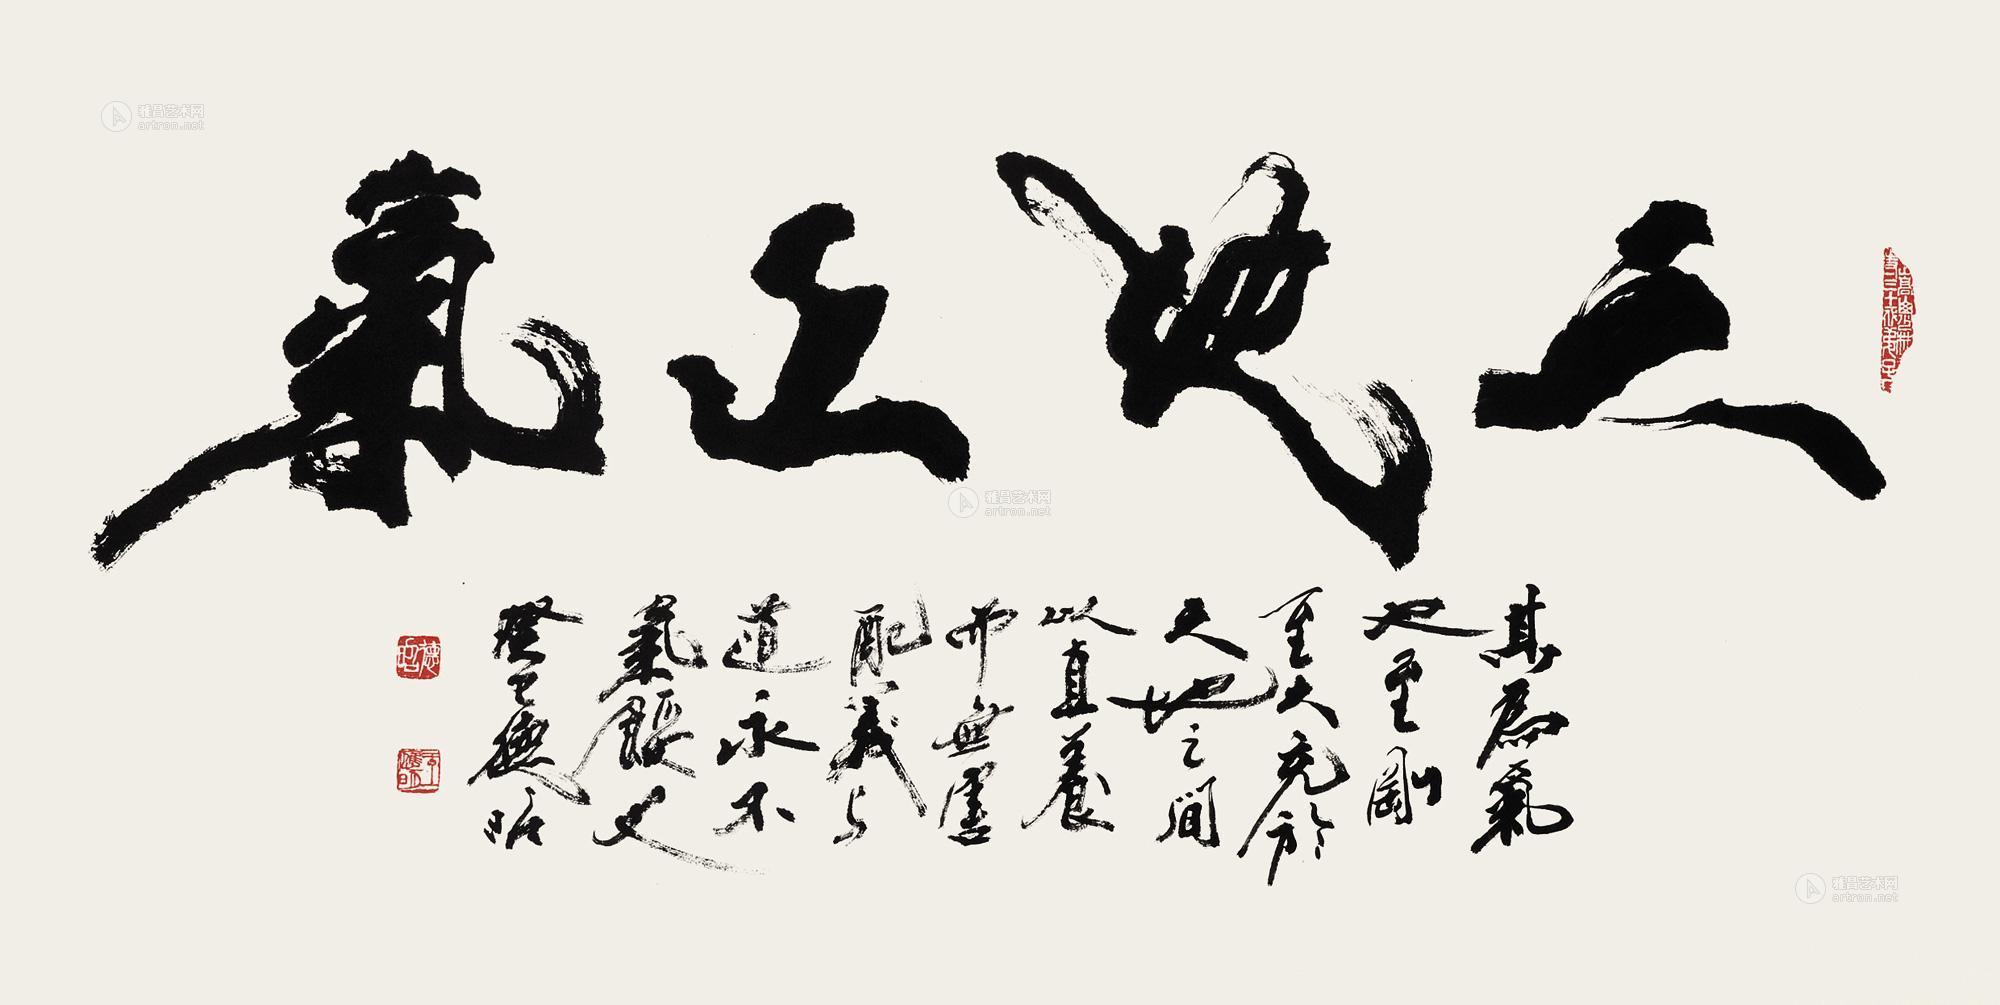 雅昌艺术网
artron.net
天地正氣
雅昌艺术网
artron.net
其為氣
也至剛
至大充於
天地之間
以直養
而無害
配義与
道永不
氣餒
癸巳德昭
德昭
雅昌艺术网
artron.net